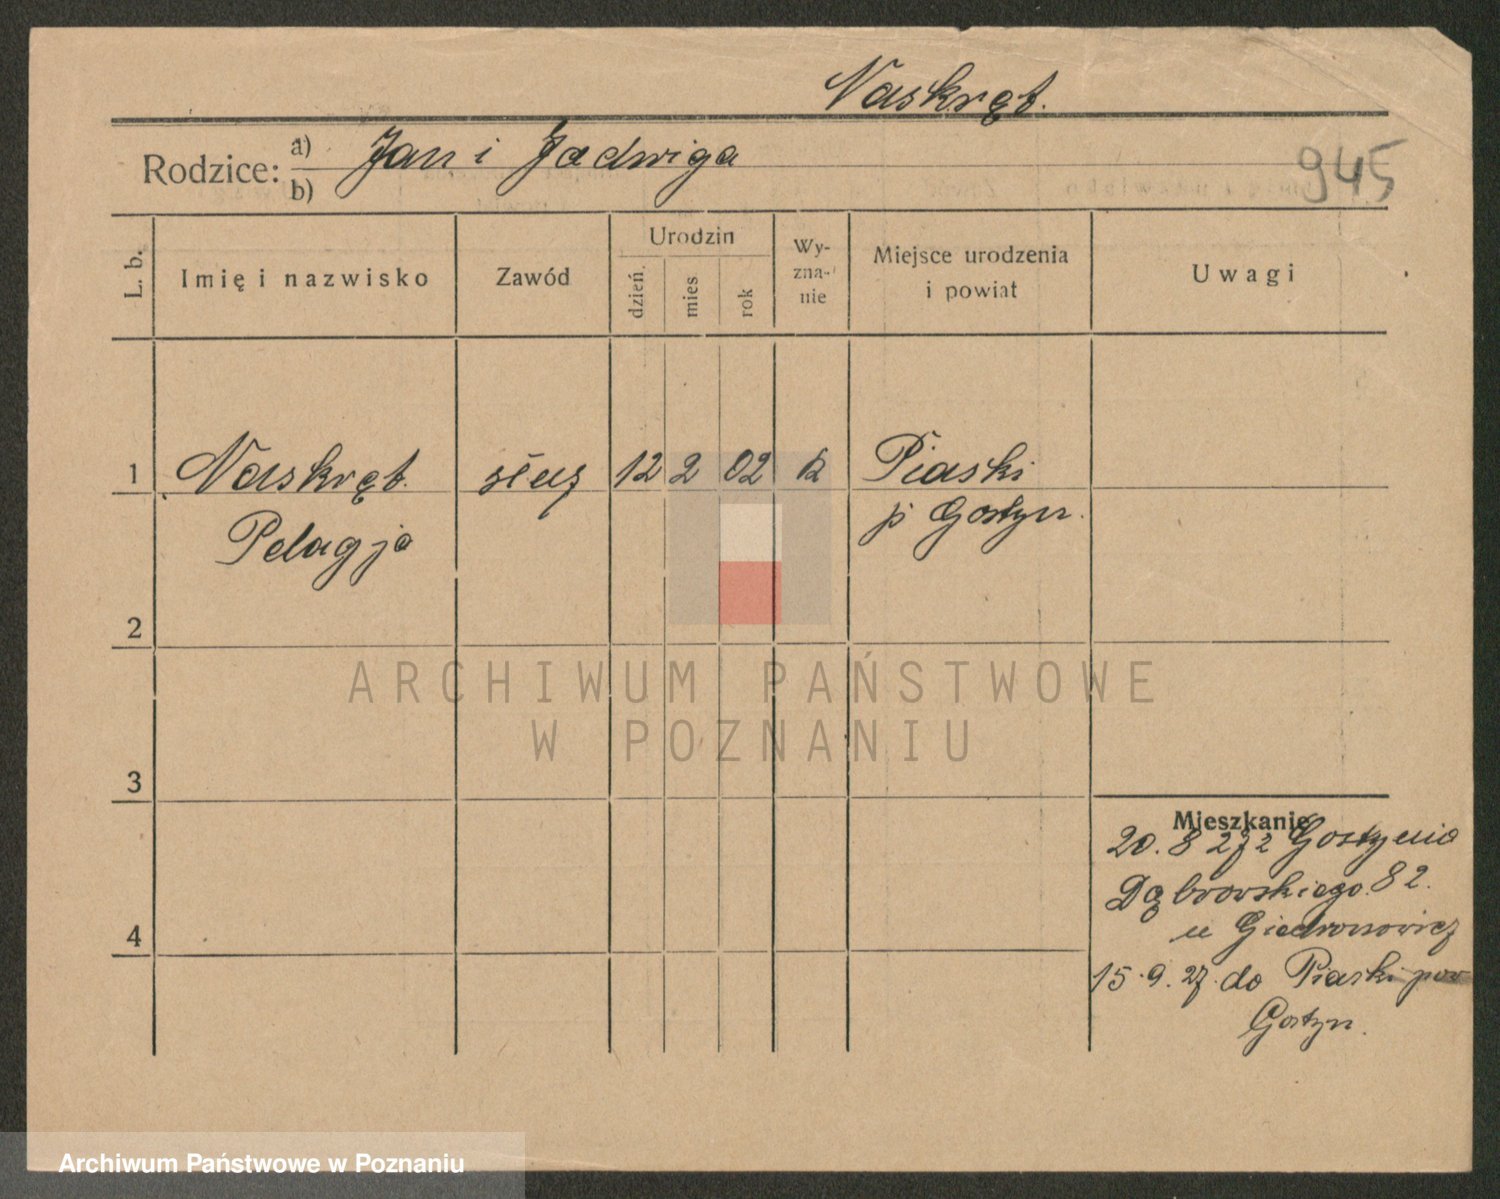 Naskręt.
Rodzice: a) Jan i Jadwiga
b)
945
L. b.
Imię i nazwisko
Zawód
Urodzin
dzień.
mies
rok
Wy-
zna-
nie
Miejsce urodzenia
i powiat
Uwagi
1 Naskręt. służ 12 2 02 k Piaski
Pelagja p Gostyn.
2
3
4
ARCHIWUM PAŃSTWOWE
W POZNANIU
Mieszkanie
20. 8 27 z Gostynia
Dąbrowskiego 82.
u
15. 9. 27. do Piaski pow
Gostyn.
Archiwum Państwowe w Poznaniu